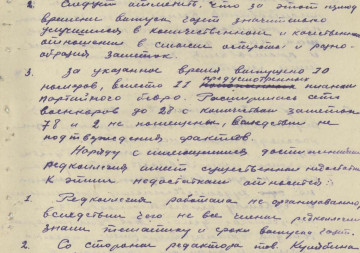 2. Следует отметить, что за этот период
времени выпуск газет значительно
улучшился в количественном и качественном
отношении в смысле остроты и разно-
образия заметок.
3. За указанное время выпущено 30
номеров, вместо 22 предусмотренных планом
партийного бюро. Расширилась сеть
военкоров до 28 с количеством заметок
78 и 2 не помещены, вследствии не
подтверждения фактов.
Наряду с имеющимися достижениями
редколлегия имеет существенные недостатки
К этим недостаткам относится:
1. Редколлегия работала не организованно,
вследствии чего не все члены редколлегии
знали тематику и сроки выпуска газет.
2. Со стороны редактора тов.